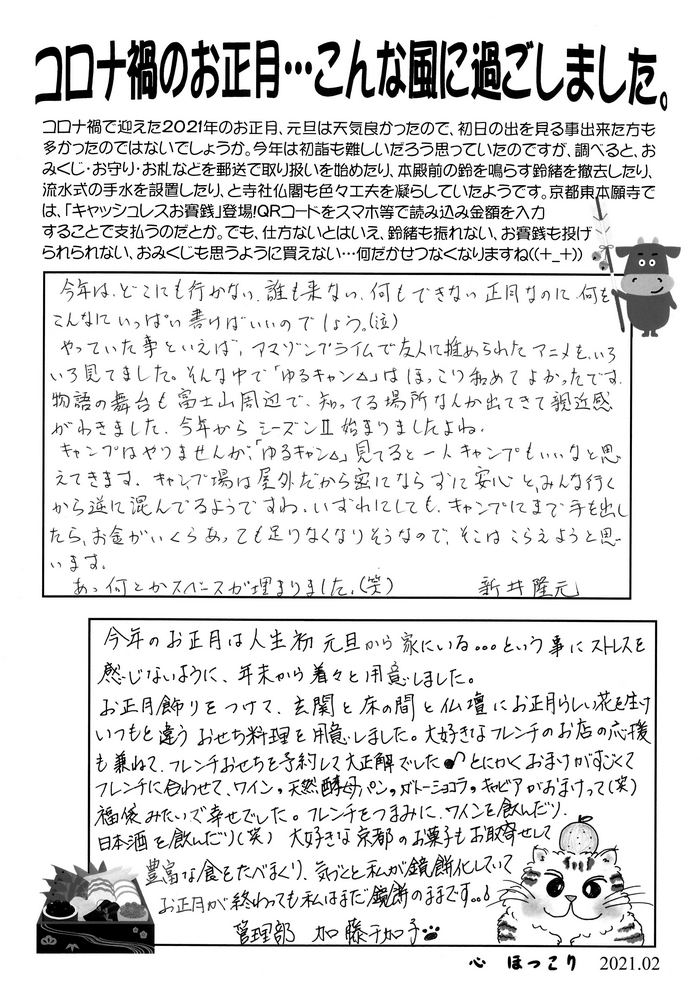 コロナ禍のお正月…こんな風に過ごしました。
コロナ禍で迎えた2021年のお正月、元旦は天気良かったので、初日の出を見る事出来た方も
多かったのではないでしょうか。今年は初詣も難しいだろう思っていたのですが、調べると、お
みくじ・お守り・お札などを郵送で取り扱いを始めたり、本殿前の鈴を鳴らす鈴緒を撤去したり、
流水式の手水を設置したり、と寺社仏閣も色々工夫を凝らしていたようです。京都東本願寺で
は、「キャッシュレスお賽銭」登場!QRコードをスマホ等で読み込み金額を入力
することで支払うのだとか。でも、仕方ないとはいえ、鈴緒も振れない、お賽銭も投げ
られられない、おみくじも思うように買えない…何だかせつなくなりますね((+_+))
今年は、どこにも行かない、誰も来ない、何もできない正月なのに何を
こんなにいっぱい書けばいいのでしょう。(泣)
やっていた事といえば、アマゾンプライムで友人に推められたアニメも、いろ
いろ見てました。そんな中で「ゆるキャン△」はほっこり和めてよかったです。
物語の舞台も富士山周辺で、知ってる場所なんか出てきて親近感
がわきました。今年からシーズンⅡ始まりましたよね。
キャンプはやりませんが、「ゆるキャン△」見てると一人キャンプもいいなと思
えてきます。キャンプ場は屋外だから密にならずに安心と、みんな行く
から逆に混んでるようですね。いずれにしても、キャンプにまで手を出し
たら、お金がいくらあっても足りなくなりそうなので、そこはこらえようと思
います。
あっ何とかスペースが埋まりました。(笑) 新井隆元
今年のお正月は人生初 元旦から家にいる...という事にストレスを
感じないように、年末から着々と用意しました。
お正月飾りをつけて、玄関と床の間と仏壇にお正月らしい花を生け
いつもと違うおせち料理を用意しました。大好きなフレンチのお店の応援
も兼ねて、フレンチおせちを予約して大正解でした♪とにかくおまけがすごくて
フレンチに合わせて、ワイン、天然酵母パン、ガトーショコラ、キャビアがおまけって(笑)
福袋みたいで幸せでした。フレンチをつまみに、ワインを飲んだり、
日本酒を飲んだり(笑) 大好きな京都のお菓子もお取寄せして
豊富な食をたべまくり、気づくと私が鏡餅化していて
お正月が終わっても私はまだ鏡餅のままです。。
管理部 加藤千加子
心 ほっこり 2021.02